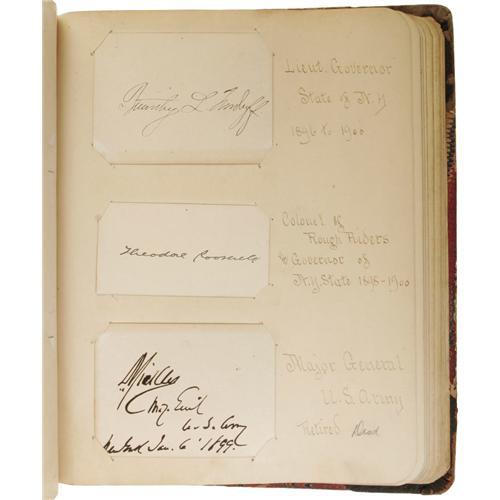 Timothy L. Woodruff
Lieut. Governor
State of N.Y
1896 to 1900
Theodore Roosevelt
Colonel of
Rough Riders
& Governor of
N.Y. State 1898-1900
Maj. Genl
U.S. Army
New York Jan. 6" 1899.
Major General
U.S. Army
Retired Dead